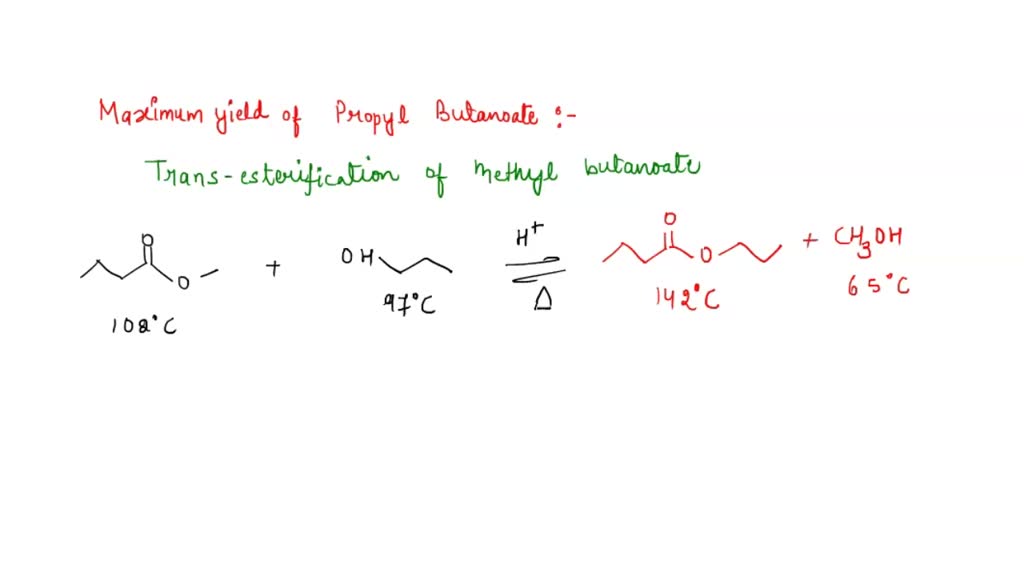 Maximum yield of Propyl Butanoate :-
Trans-esterification of Methyl butanoate
O
O
+
OH
H+
Δ
O
O
+ CH3OH
108°C
97°C
142°C
65°C